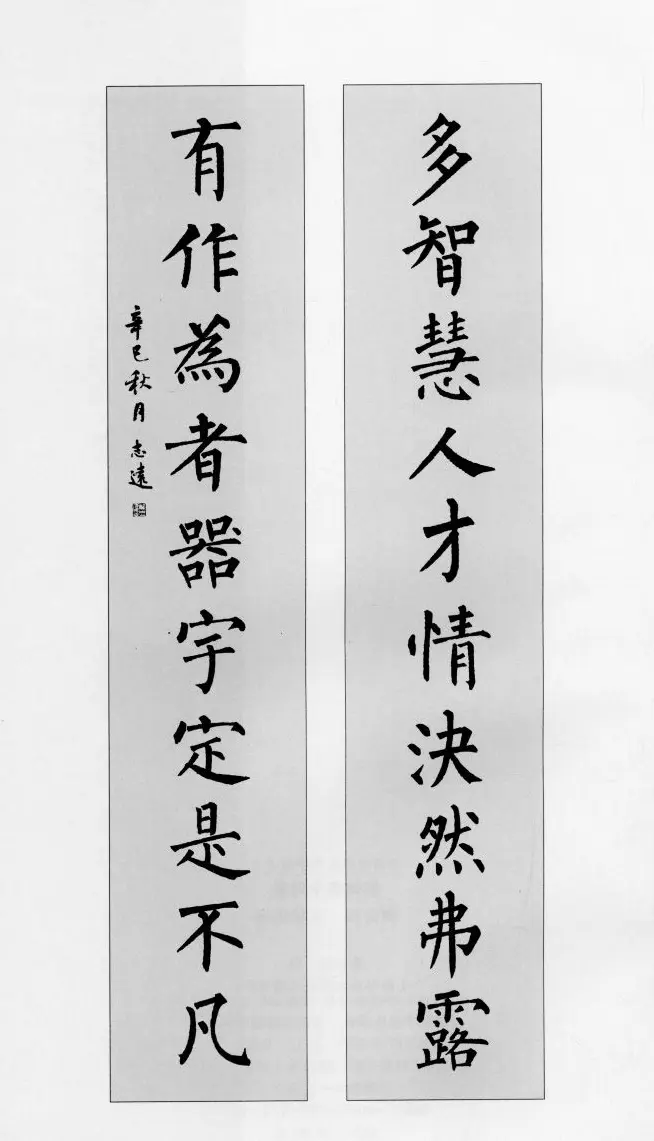 多智慧人才情決然弗露
有作為者器宇定是不凡
辛巳秋月 志遠